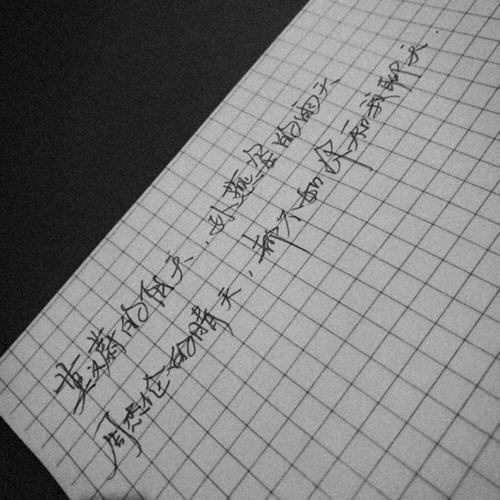 莫文蔚的阴天,孙燕姿的雨天
周杰伦的晴天,都不如你和我聊天.